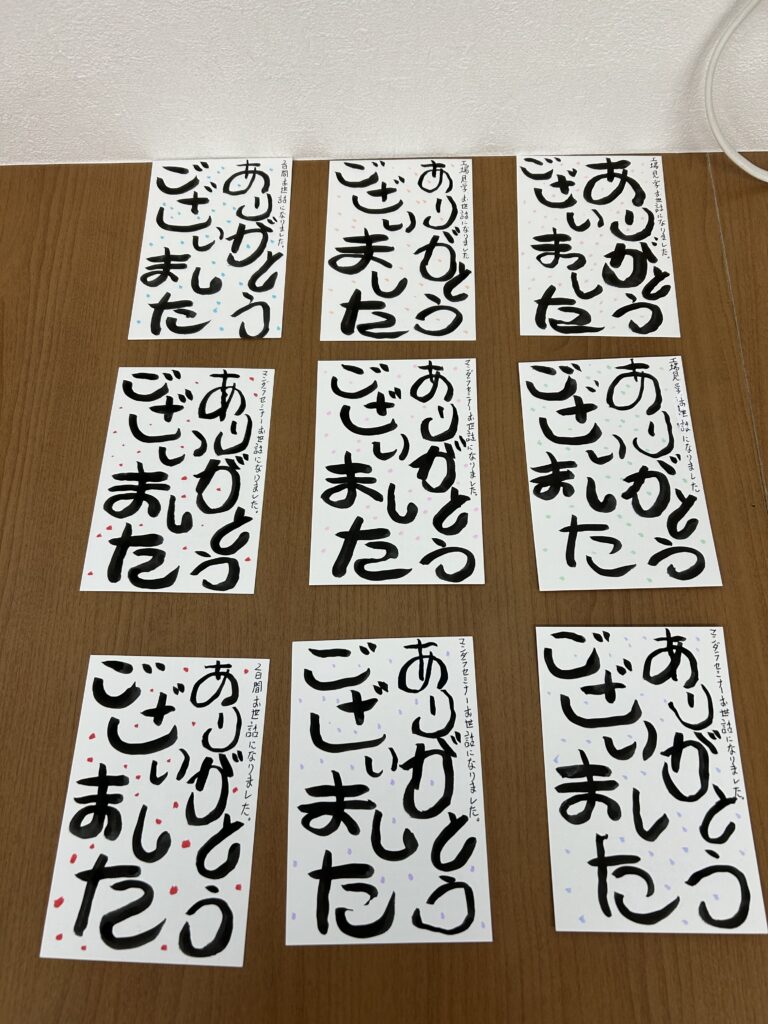 2日間お世話になりました。
ありがとう
ございました
工場見学お世話になりました
ありがとう
ございました
工場見学お世話になりました。
ありがとう
ございました
マンダラセミナーお世話になりました。
ありがとう
ございました
マンダラセミナーお世話になりました。
ありがとう
ございました
工場見学お世話になりました
ありがとう
ございました
2日間お世話になりました。
ありがとう
ございました
マンダラセミナーお世話になりました。
ありがとう
ございました
マンダラセミナーお世話になりました。
ありがとう
ございました